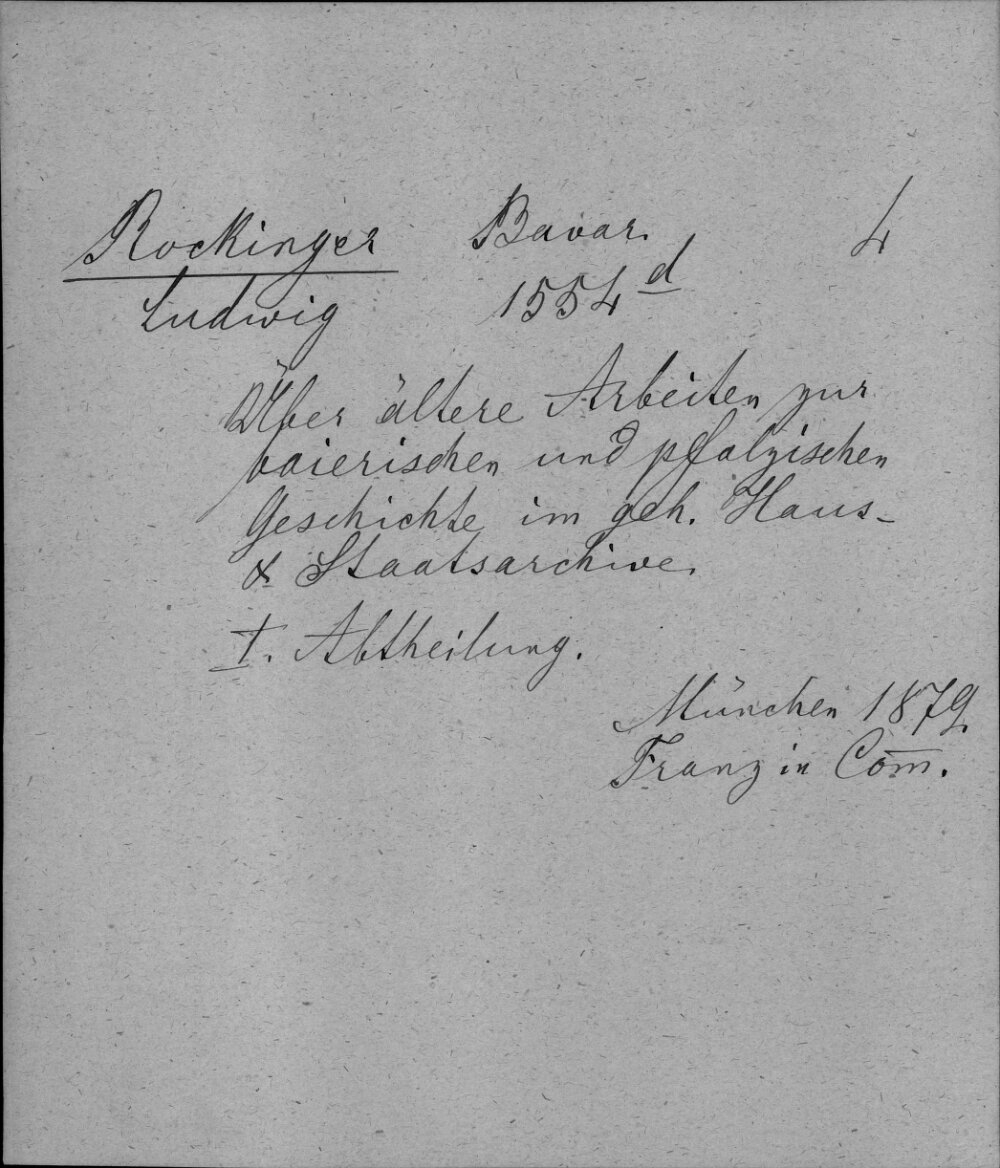 Rockinger Bavar. 4
Ludwig 1554 d
Über ältere Arbeiten zur
baierischen und pfalzischen
Geschichte im geh. Haus-
& Staatsarchive.
I. Abtheilung.
München 1879
Franz in Com̅.